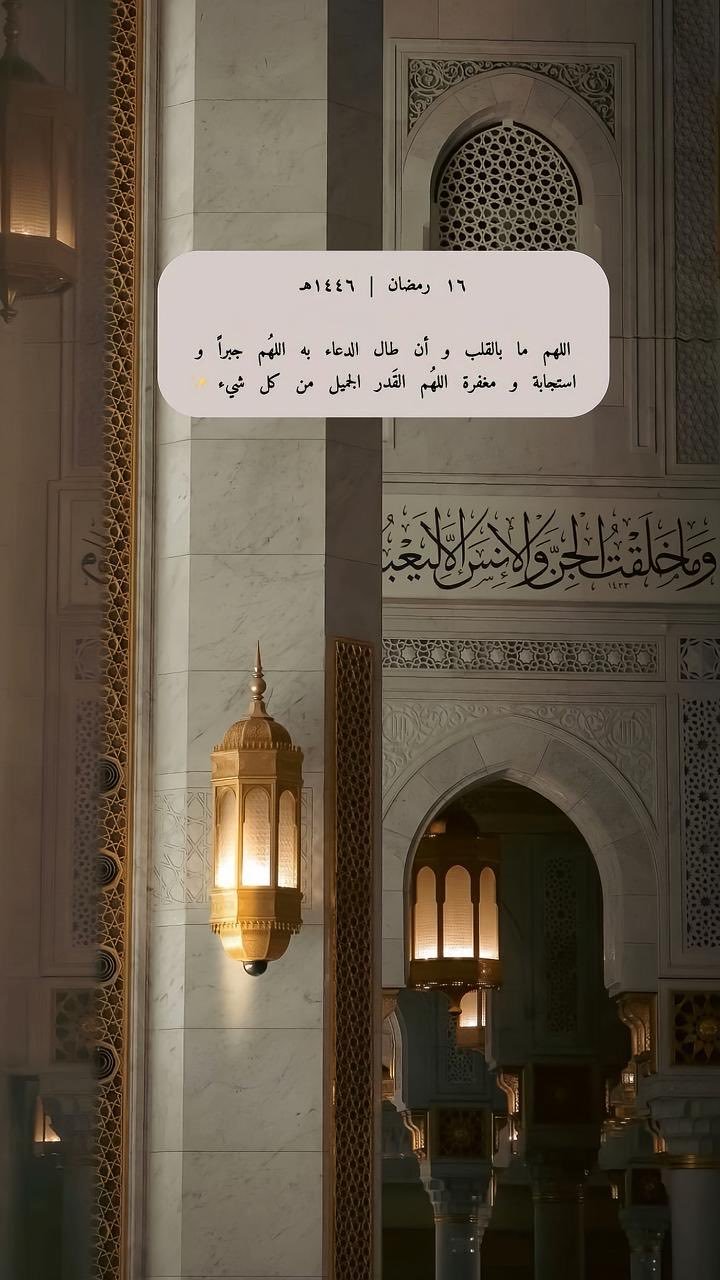 ١٦ رمضان | ١٤٤٦هـ
اللهم ما بالقلب و أن طال الدعاء به اللهُم جبراً و
استجابة و مغفرة اللهُم القَدر الجميل من كل شيء ✨
وَمَا خَلَقْتُ الْجِنَّ وَالْإِنسَ إِلَّا لِيَعْبُ
١٤٣٣